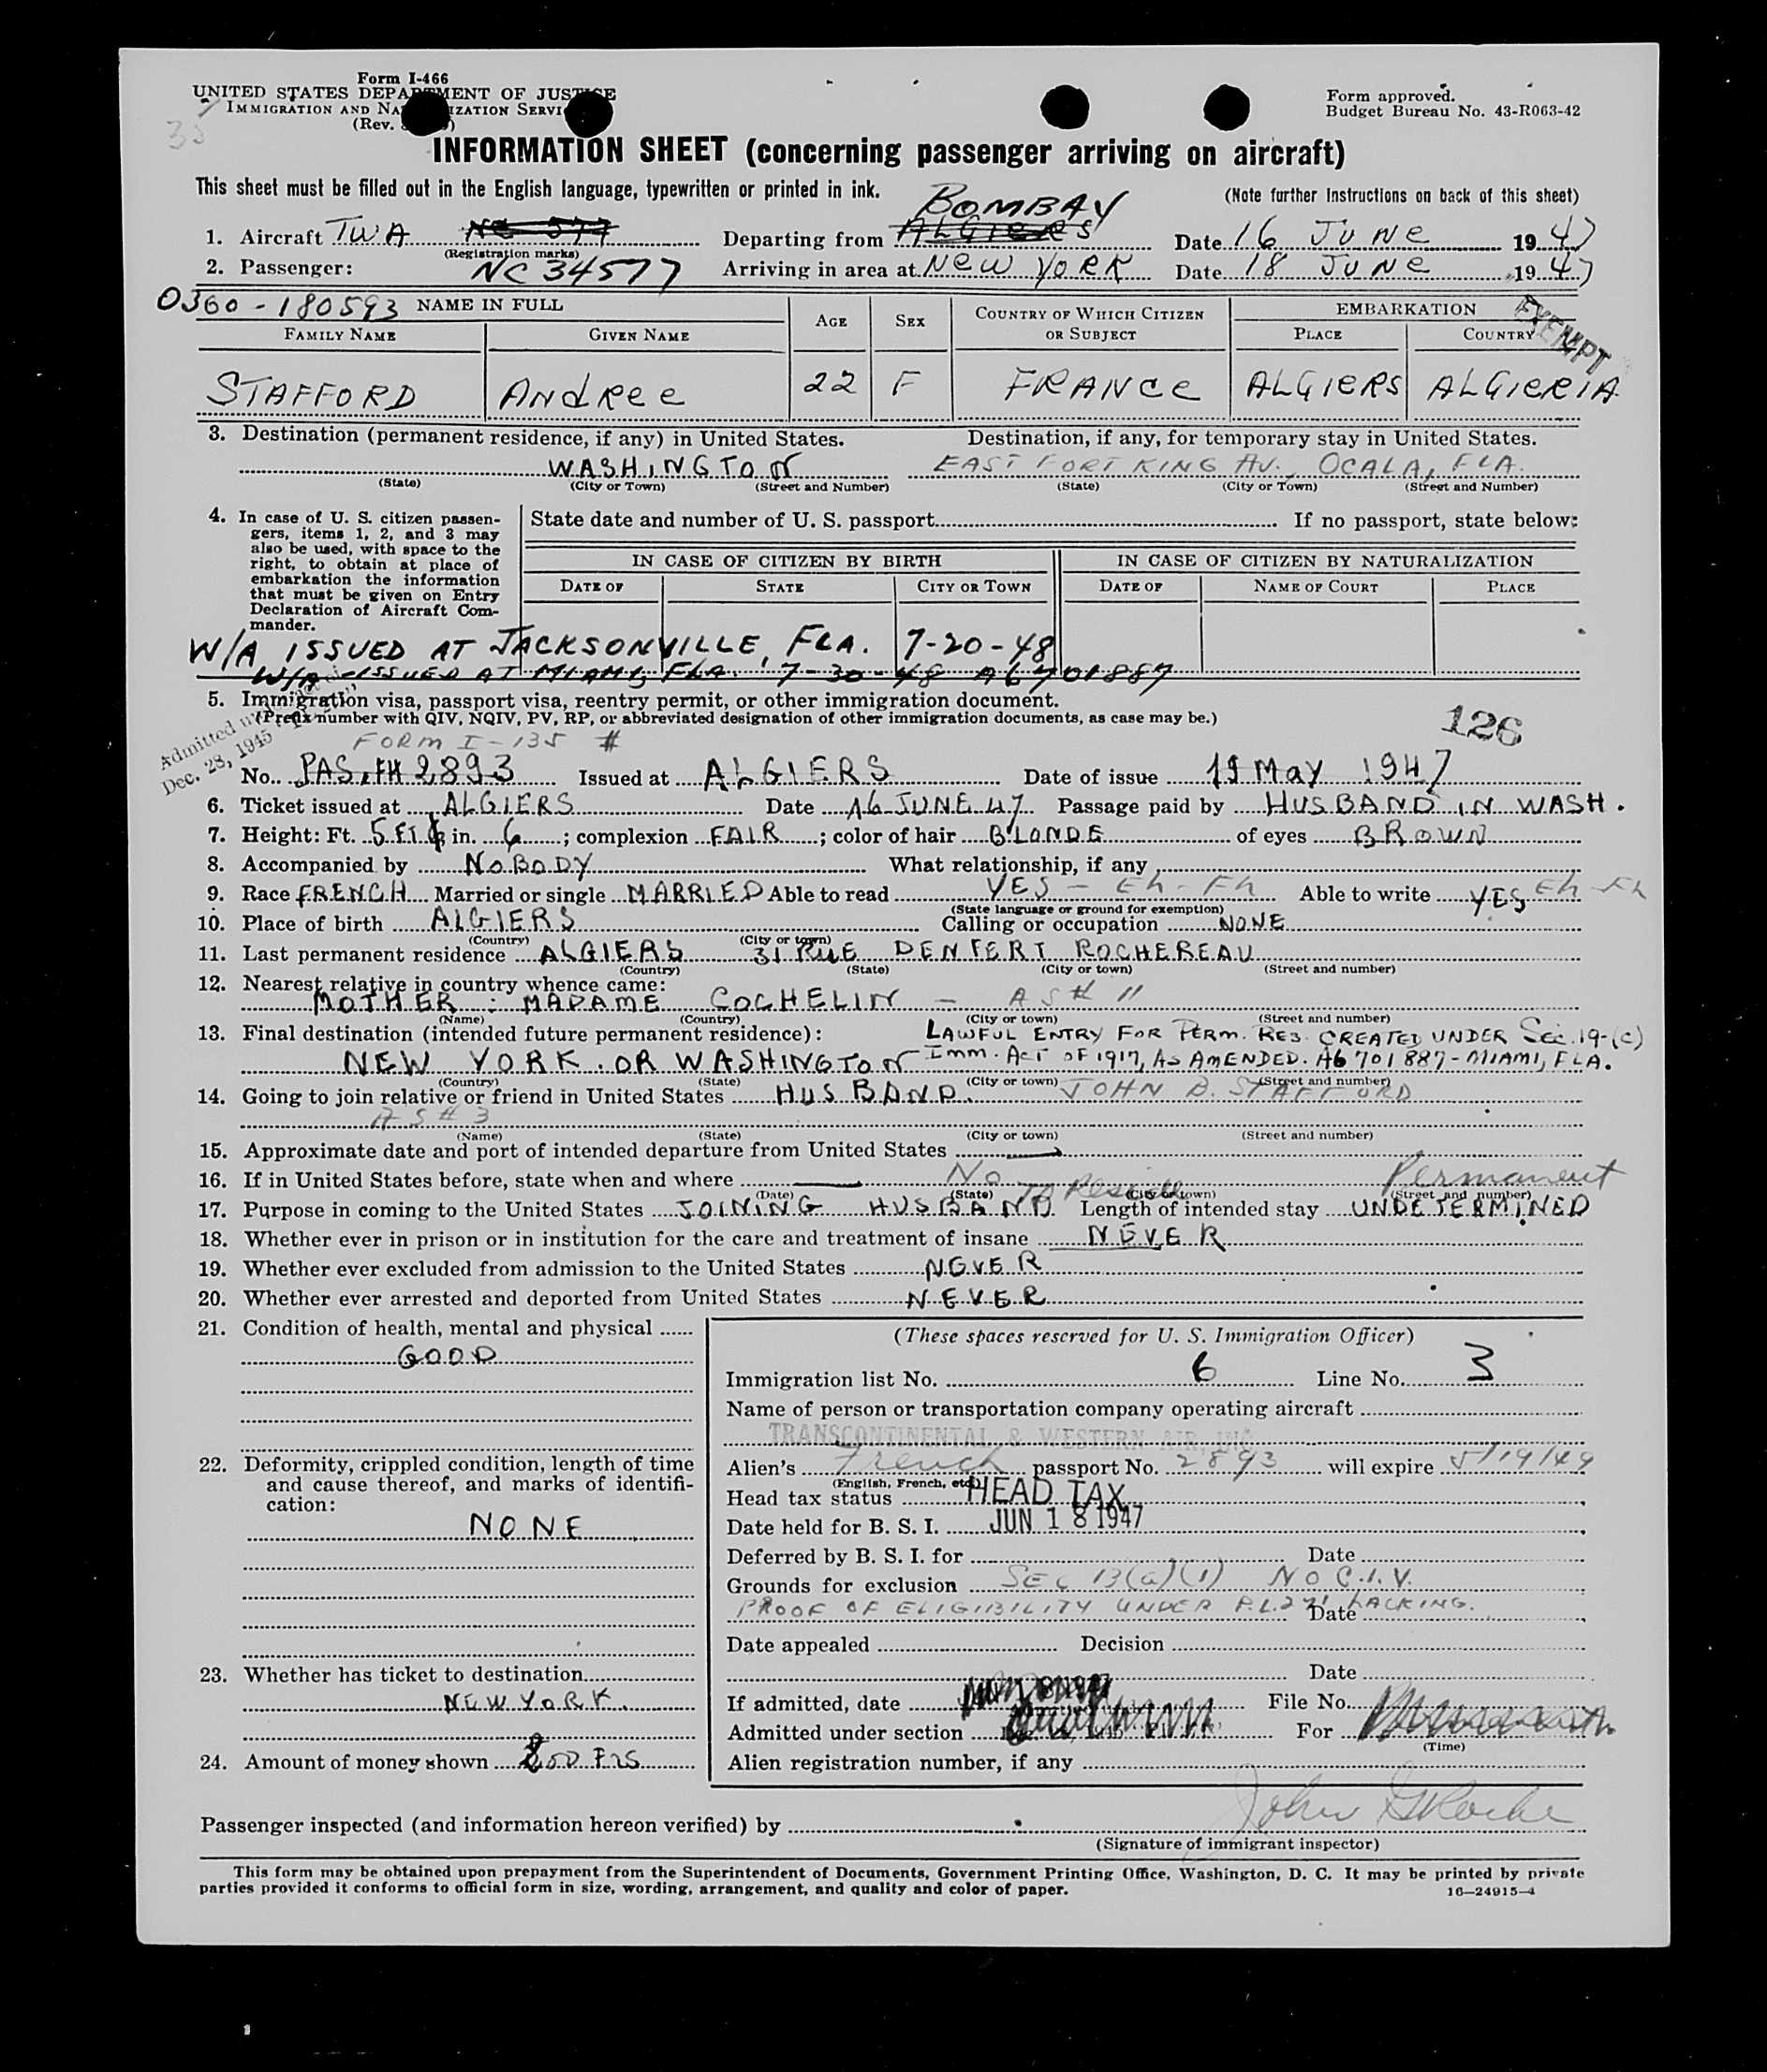 Form I-466
UNITED STATES DEPARTMENT OF JUSTICE
IMMIGRATION AND NATURALIZATION SERVICE
(Rev. )
Form approved.
Budget Bureau No. 43-R063-42
INFORMATION SHEET (concerning passenger arriving on aircraft)
This sheet must be filled out in the English language, typewritten or printed in ink.
(Note further instructions on back of this sheet)
BOMBAY
1. Aircraft TWA NC 577 Departing from ALGIERS Date 16 JUNE 1947
(Registration marks)
2. Passenger: NC 34577 Arriving in area at NEW YORK Date 18 JUNE 1947
0360-180593 NAME IN FULL AGE SEX COUNTRY OF WHICH CITIZEN OR SUBJECT EMBARKATION EXEMPT
FAMILY NAME GIVEN NAME PLACE COUNTRY
STAFFORD ANdRee 22 F FRANCE ALGIERS ALGIERIA
3. Destination (permanent residence, if any) in United States. Destination, if any, for temporary stay in United States.
WASHINGTON EAST FORT KING AV., OCALA, FLA.
(State) (City or Town) (Street and Number) (State) (City or Town) (Street and Number)
4. In case of U. S. citizen passengers, items 1, 2, and 3 may also be used, with space to the right, to obtain at place of embarkation the information that must be given on Entry Declaration of Aircraft Commander.
State date and number of U. S. passport If no passport, state below:
IN CASE OF CITIZEN BY BIRTH IN CASE OF CITIZEN BY NATURALIZATION
DATE OF STATE CITY OR TOWN DATE OF NAME OF COURT PLACE
W/A ISSUED AT JACKSONVILLE, FLA. 7-20-48
W/A ISSUED AT MIAMI, FLA. 7-30-48 A6701887
5. Immigration visa, passport visa, reentry permit, or other immigration document.
(Prefix number with QIV, NQIV, PV, RP, or abbreviated designation of other immigration documents, as case may be.)
126
Admitted
Dec. 28, 1945
FORM I-135 #
No. PAS.FH 2893 Issued at ALGIERS Date of issue 19 MAY 1947
6. Ticket issued at ALGIERS Date 16 JUNE 47 Passage paid by HUSBAND IN WASH.
7. Height: Ft. 5 FT. in. 6 ; complexion FAIR ; color of hair BLONDE of eyes BROWN
8. Accompanied by NOBODY What relationship, if any
9. Race FRENCH Married or single MARRIED Able to read YES - Eh - Fh Able to write YES Eh - Fh
(State language or ground for exemption)
10. Place of birth ALGIERS Calling or occupation NONE
(Country) (City or town)
11. Last permanent residence ALGIERS 31 RUE DENFERT ROCHEREAU
(Country) (State) (City or town) (Street and number)
12. Nearest relative in country whence came:
MOTHER : MADAME COCHELIN - AS # 11
(Name) (Country) (City or town) (Street and number)
13. Final destination (intended future permanent residence): LAWFUL ENTRY FOR PERM. RES. CREATED UNDER SEC. 19-(c)
NEW YORK . OR WASHINGTON IMM. ACT OF 1917, AS AMENDED. A6 701 887 - MIAMI, FLA.
(Country) (State) (City or town) (Street and number)
14. Going to join relative or friend in United States HUSBAND. JOHN B. STAFFORD
AS # 3
(Name) (State) (City or town) (Street and number)
15. Approximate date and port of intended departure from United States
16. If in United States before, state when and where No
(Date) (State) (City or town) (Street and number)
To Reside Permanent
17. Purpose in coming to the United States JOINING HUSBAND Length of intended stay UNDETERMINED
18. Whether ever in prison or in institution for the care and treatment of insane NEVER
19. Whether ever excluded from admission to the United States NEVER
20. Whether ever arrested and deported from United States NEVER
21. Condition of health, mental and physical
GOOD
22. Deformity, crippled condition, length of time and cause thereof, and marks of identification:
NONE
23. Whether has ticket to destination
NEW YORK.
24. Amount of money shown 800 FRS
(These spaces reserved for U. S. Immigration Officer)
Immigration list No. 6 Line No. 3
Name of person or transportation company operating aircraft
TRANSCONTINENTAL & WESTERN AIR, INC.
Alien's French passport No. 2893 will expire 5/19/49
(English, French, etc.)
Head tax status HEAD TAX
Date held for B. S. I. JUN 18 1947
Deferred by B. S. I. for Date
Grounds for exclusion SEC 13(a)(1) NO C.I.V.
PROOF OF ELIGIBILITY UNDER P.L. 271 LACKING.
Date
Date appealed Decision
Date
If admitted, date File No.
Admitted under section For
(Time)
Alien registration number, if any
Passenger inspected (and information hereon verified) by John G Roche
(Signature of immigrant inspector)
This form may be obtained upon prepayment from the Superintendent of Documents, Government Printing Office, Washington, D. C. It may be printed by private
parties provided it conforms to official form in size, wording, arrangement, and quality and color of paper.
16—24915-4